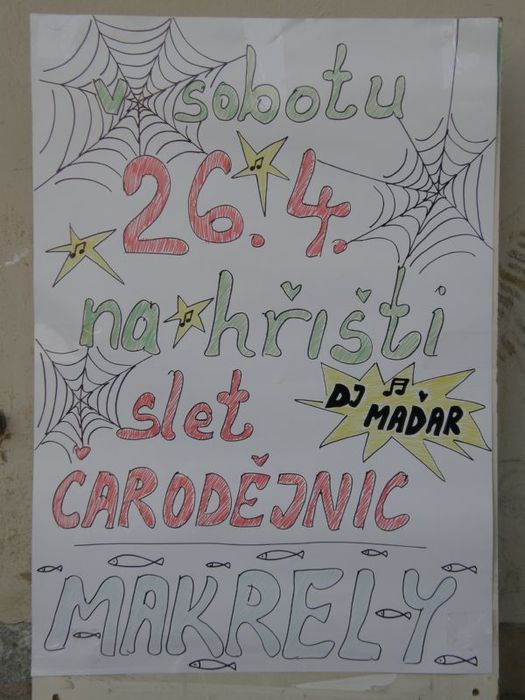 v sobotu
26. 4.
na hřišti
slet
DJ
MAĎAR
ČARODĚJNIC
MAKRELY